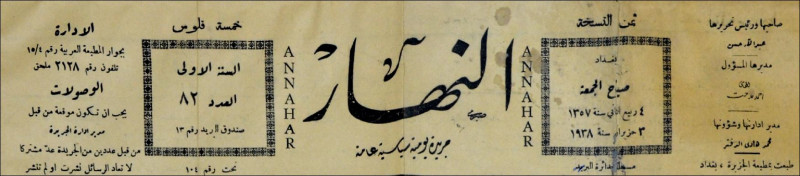 صاحبها ورئيس تحريرها
عبدالله حسن
مديرها المسؤول
مدير ادارتها وشؤونها
طبعت بمطبعة الجزيرة، بغداد
ثمن النسخة
خمسة فلوس
بغداد
صباح الجمعة
٤ ربيع الثاني سنة ١٣٥٧
٣ حزيران سنة ١٩٣٨
مسجلة بدائرة البريد
ANNAHAR
النهار
ANNAHAR
جريدة يومية سياسية عامة
السنة الاولى
العدد ٨٢
صندوق البريد رقم ١٣
تحت رقم ١٠٤
الادارة
بجوار المطبعة العربية رقم ١٥/٤
تلفون رقم ٢١٢٨ ملحق
الوصولات
يجب ان تكون موقعة من قبل
مدير ادارة الجريدة
من قبل عددين من الجريدة عد مشتركا
لا تعاد الرسائل نشرت او لم تنشر